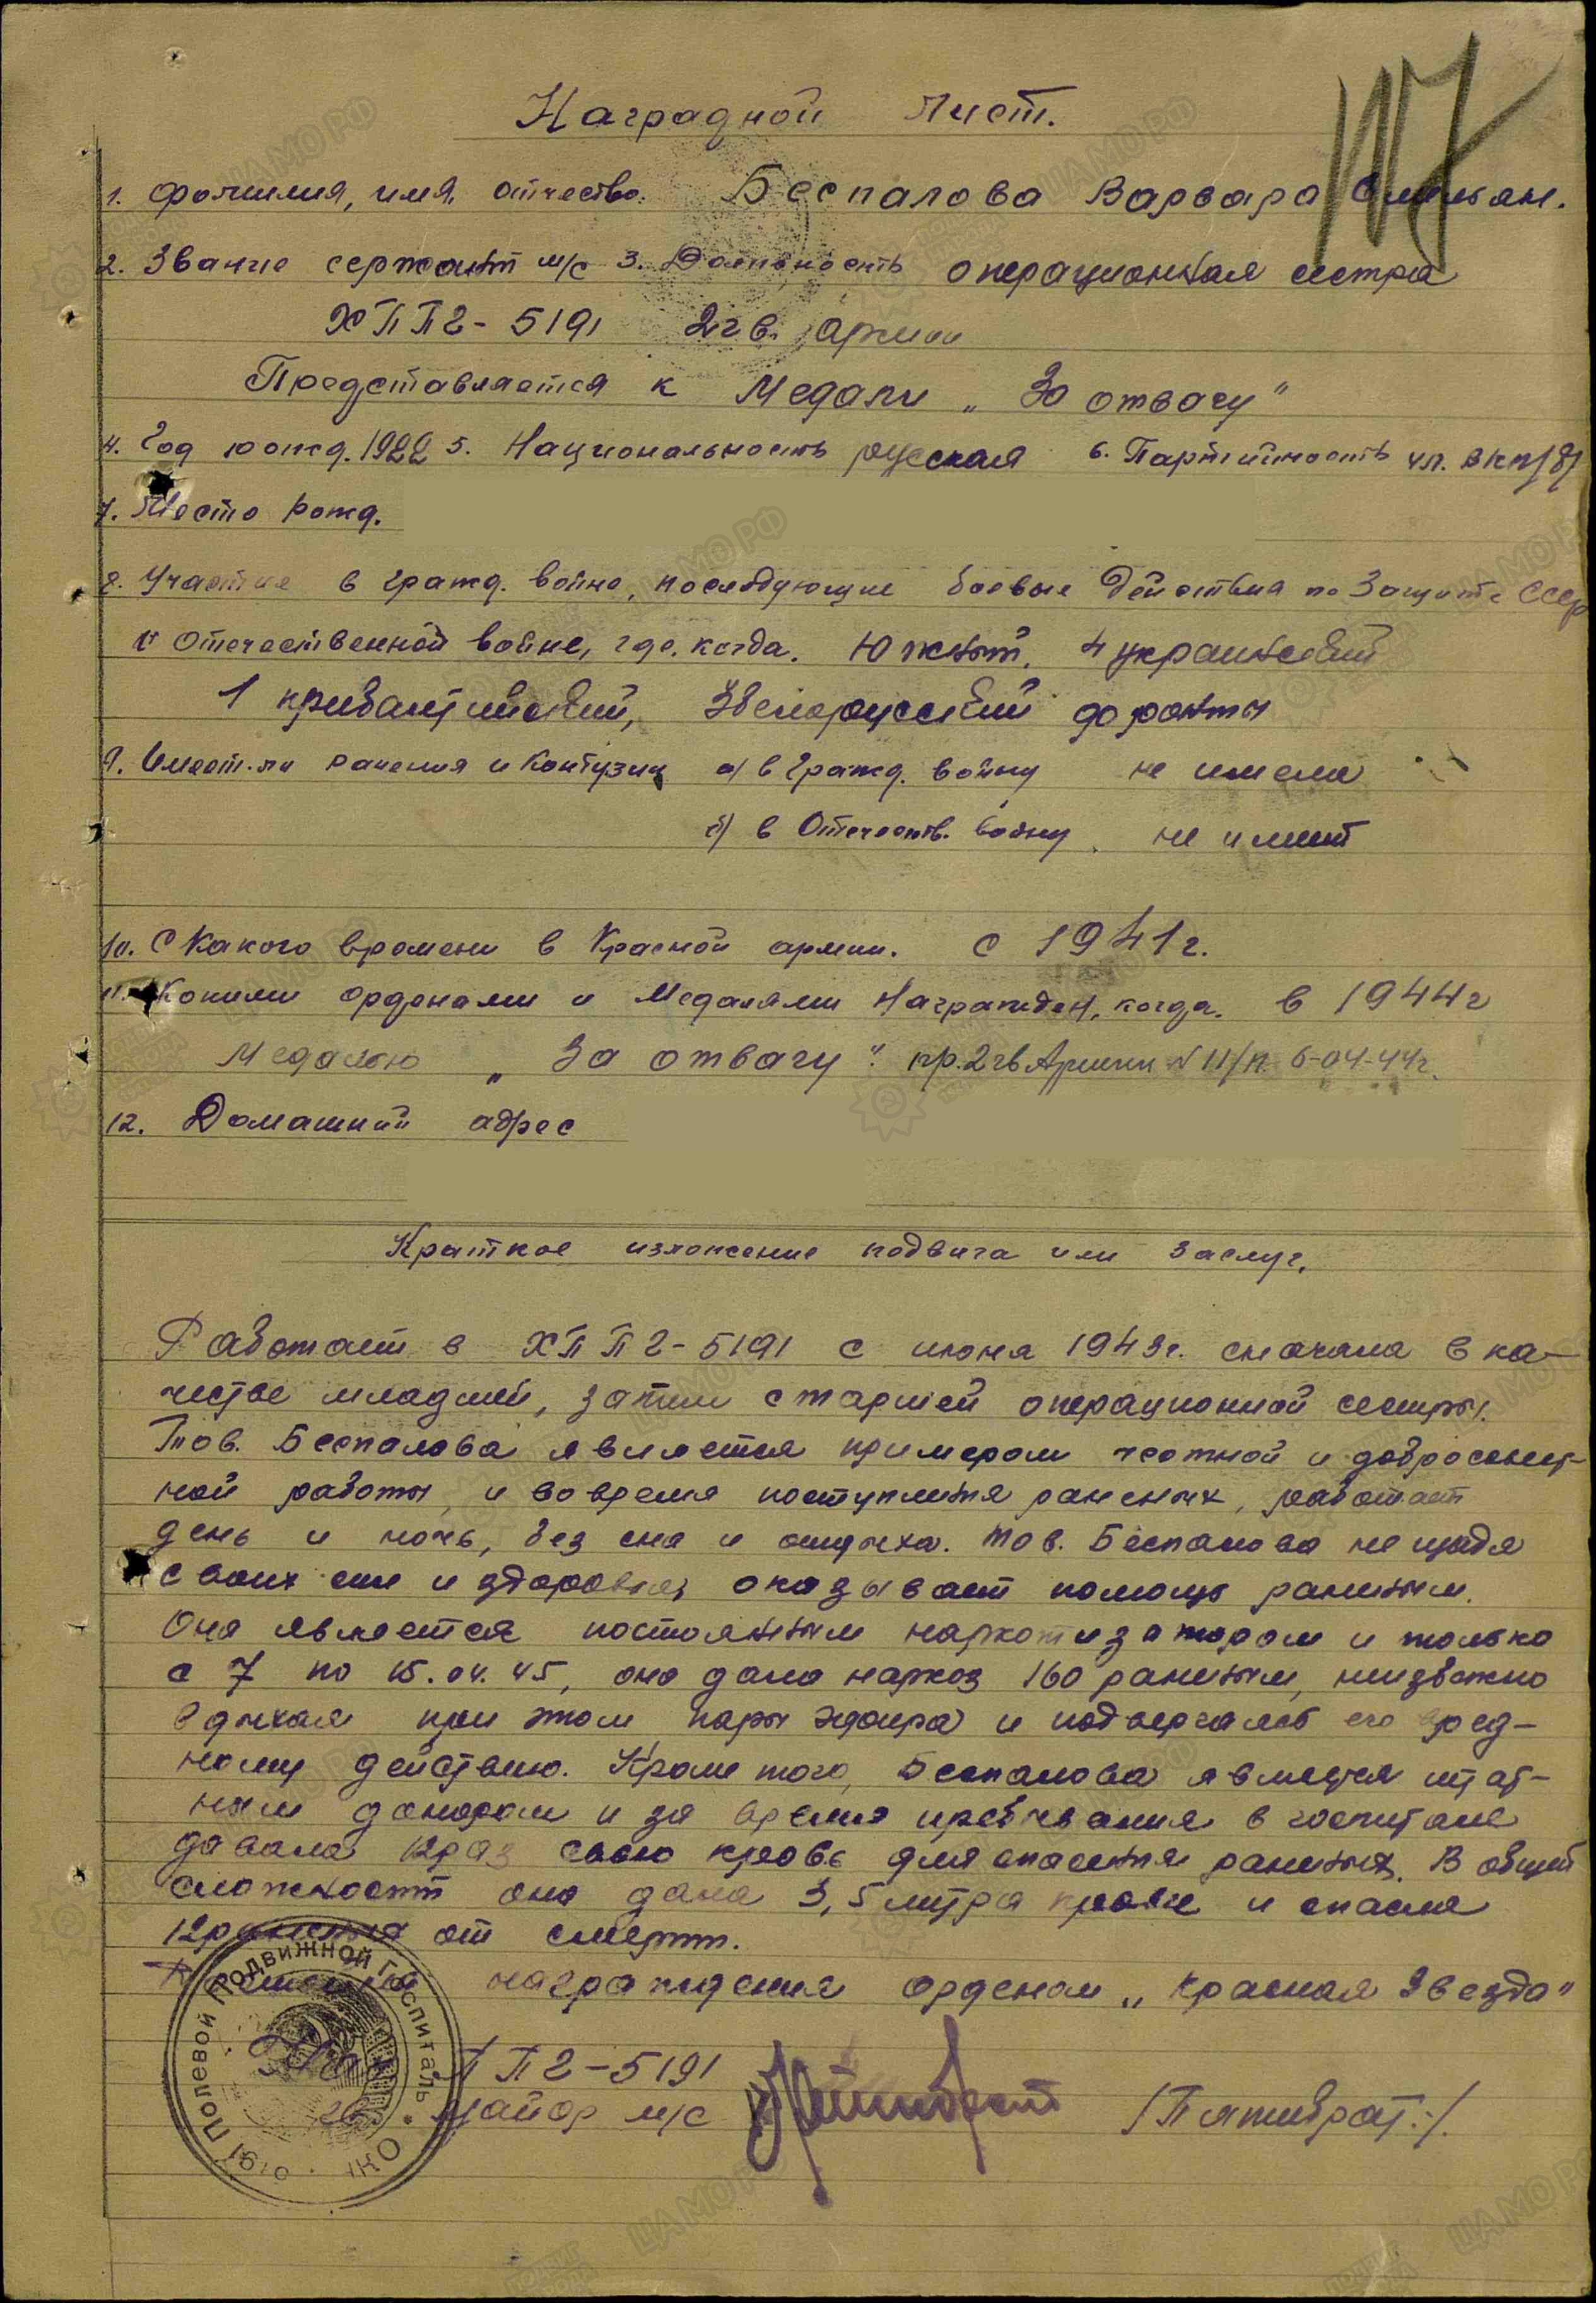 Наградной Лист.
1. Фамилия, имя, отчество. Беспалова Варвара Емельян.
2. Звание сержант м/с 3. Должность операционная сестра
ХППГ-5191 2 гв. армии
Представляется к Медали „За отвагу"
4. Год рожд. 1922 5. Национальность русская 6. Партийность чл. ВКП/б/
7. Место рожд.
8. Участие в гражд. войне, последующие боевые действия по защите СССР
и отечественной войне, где, когда. Южный, 4 украинский
1 прибалтийский, 3 белорусский фронты
9. Имеет-ли ранения и контузии а/ в гражд. войну не имела
б/ в Отечеств. войну не имеет
10. С какого времени в Красной армии. с 1941 г.
11. Какими орденами и медалями награжден, когда. в 1944 г
Медалью „За отвагу". пр. 2 гв Армии № 11/н 6-04-44 г.
12. Домашний адрес
Краткое изложение подвига или заслуг.
Работает в ХППГ-5191 с июня 1943 г. сначала в ка-
честве младшей, затем старшей операционной сестры.
Тов. Беспалова является примером честной и добросовест-
ной работы, и во время поступления раненых, работает
день и ночь, без сна и отдыха. Тов. Беспалова не щадя
своих сил и здоровья, оказывает помощь раненым.
Она является постоянным наркотизатором и только
с 7 по 15.04.45, она дала наркоз 160 раненым, неизбежно
вдыхая при этом пары эфира и подвергаясь его вред-
ному действию. Кроме того, Беспалова является штат-
ным донором и за время пребывания в госпитале
давала 12 раз свою кровь для спасения раненых. В общей
сложности она дала 3,5 литра крови и спасла
12 раненых от смерти.
награждения орденом „Красная Звезда"
ППГ-5191
майор м/с /Пятибрат./
Полевой Подвижной Госпиталь
5191